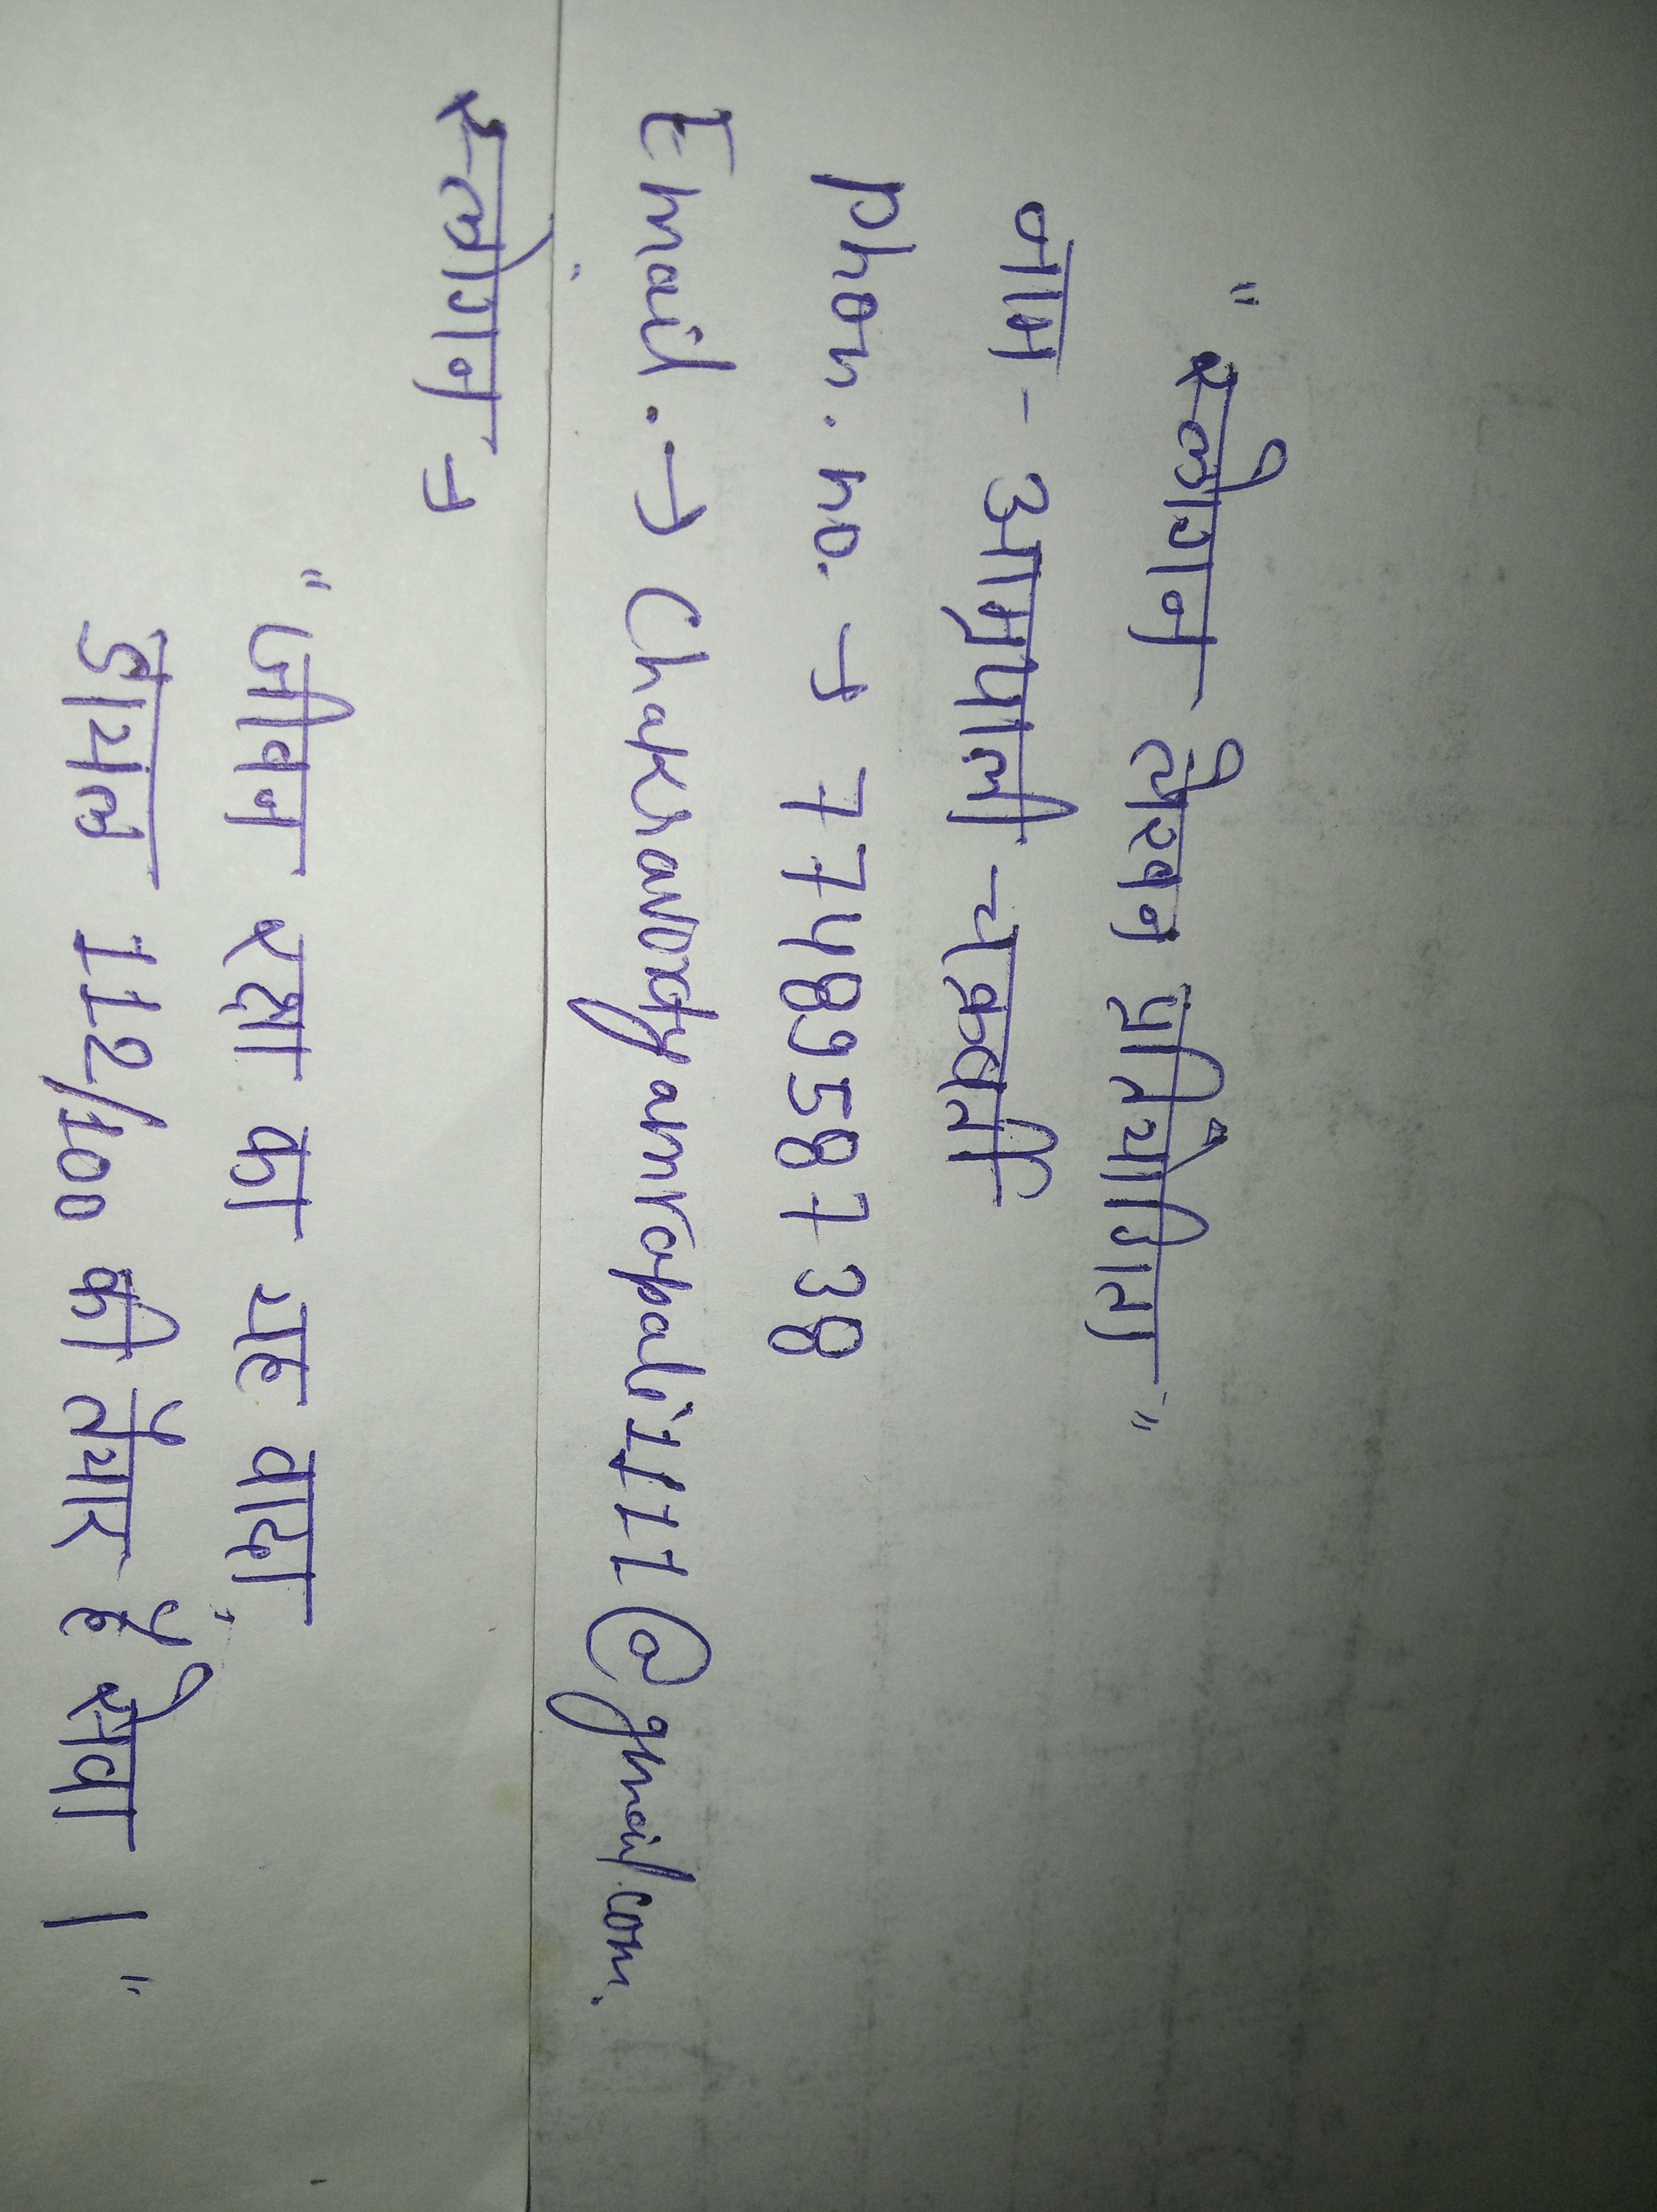 "स्लेगान लेखन प्रतियोगिता"
नाम - आम्रपाली चक्रवर्ती
phon. no. → 7748958738
Email. → Chakravortyamrapali1111@gmail.com.
स्लोगन →
"जीवन रक्षा का यह वादा,
डायल 112/100 की तैयार है सेवा।"